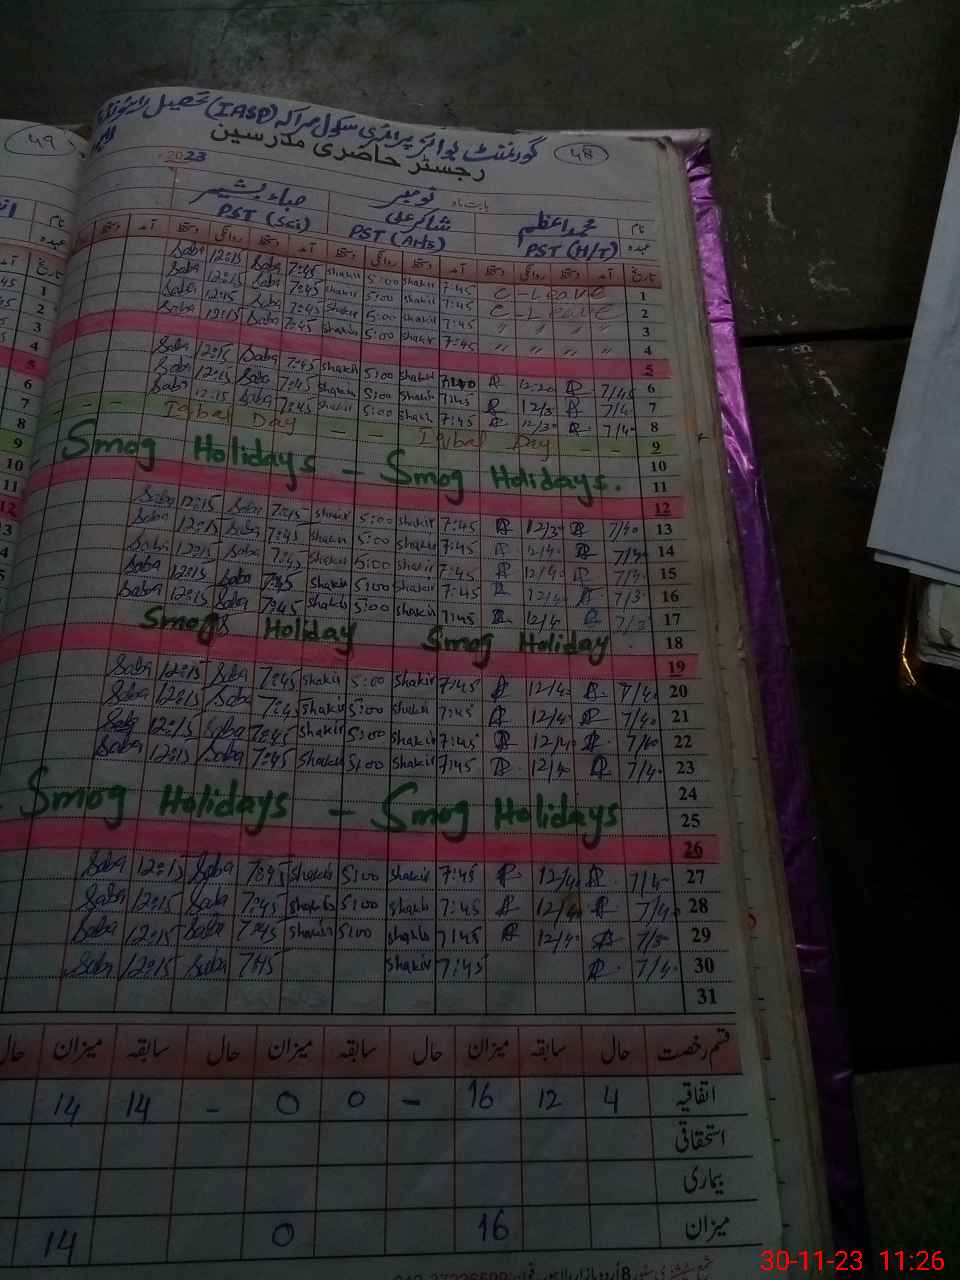 گورنمنٹ بوائز پرائمری سکول مراکہ (IASP) تحصیل رائیونڈ
49 48
رجسٹر حاضری مدرسین
2023
بابت ماہ نومبر
نام محمد اعظم شاکر علی صباء بشیر
عہدہ PST (H/T) PST (Arts) PST (Sci)
تاریخ آمد دستخط روانگی دستخط آمد دستخط روانگی دستخط آمد دستخط روانگی دستخط آمد
Saba 12:15 Saba 7:45 shakir 5:00 shakir 7:45 C-Leave 1
Saba 12:15 Saba 7:45 shakir 5:00 shakir 7:45 C-Leave 2
Saba 12:15 Saba 7:45 shakir 5:00 shakir 7:45 〃 〃 〃 〃 3
Saba 12:15 Saba 7:45 shakir 5:00 shakir 7:45 〃 〃 〃 〃 4
5
Saba 12:15 Saba 7:45 shakir 5:00 shakir 12:20 7/45 6
Saba 12:15 Saba 7:45 shakir 5:00 shakir 7:45 12/3 7/4 7
Saba 12:15 Saba 7:45 shakir 5:00 shakir 7:45 12/30 7/40 8
Iqbal Day - - Iqbal Day - - 9
10
Smog Holidays - Smog Holidays.
11
12
Saba 12:15 Saba 7:45 shakir 5:00 shakir 7:45 12/30 7/40 13
Saba 12:15 Saba 7:45 shakir 5:00 shakir 7:45 12/40 7/40 14
Saba 12:15 Saba 7:45 shakir 5:00 shakir 7:45 12/40 7/40 15
Saba 12:15 Saba 7:45 shakir 5:00 shakir 7:45 12/40 7/3 16
Saba 12:15 Saba 7:45 shakir 5:00 shakir 7:45 12/4 7/3 17
Smog Holiday Smog Holiday 18
19
Saba 12:15 Saba 7:45 shakir 5:00 shakir 7:45 12/40 7/40 20
Saba 12:15 Saba 7:45 shakir 5:00 shakir 7:45 12/40 7/40 21
Saba 12:15 Saba 7:45 shakir 5:00 shakir 7:45 12/40 7/40 22
Saba 12:15 Saba 7:45 shakir 5:00 shakir 7:45 12/40 7/40 23
24
Smog Holidays - Smog Holidays
25
26
Saba 12:15 Saba 7:45 shakir 5:00 shakir 7:45 12/40 7/4 27
Saba 12:15 Saba 7:45 shakir 5:00 shakir 7:45 12/40 7/40 28
Saba 12:15 Saba 7:45 shakir 5:00 shakir 7:45 12/40 7/3 29
Saba 12:15 Saba 7:45 shakir 7:45 7/40 30
31
قسم رخصت حال سابقہ میزان حال سابقہ میزان حال سابقہ میزان حال
اتفاقیہ 4 12 16 - 0 0 - 14 14
استحقاقی
بیماری
میزان 16 0 14
30-11-23 11:26